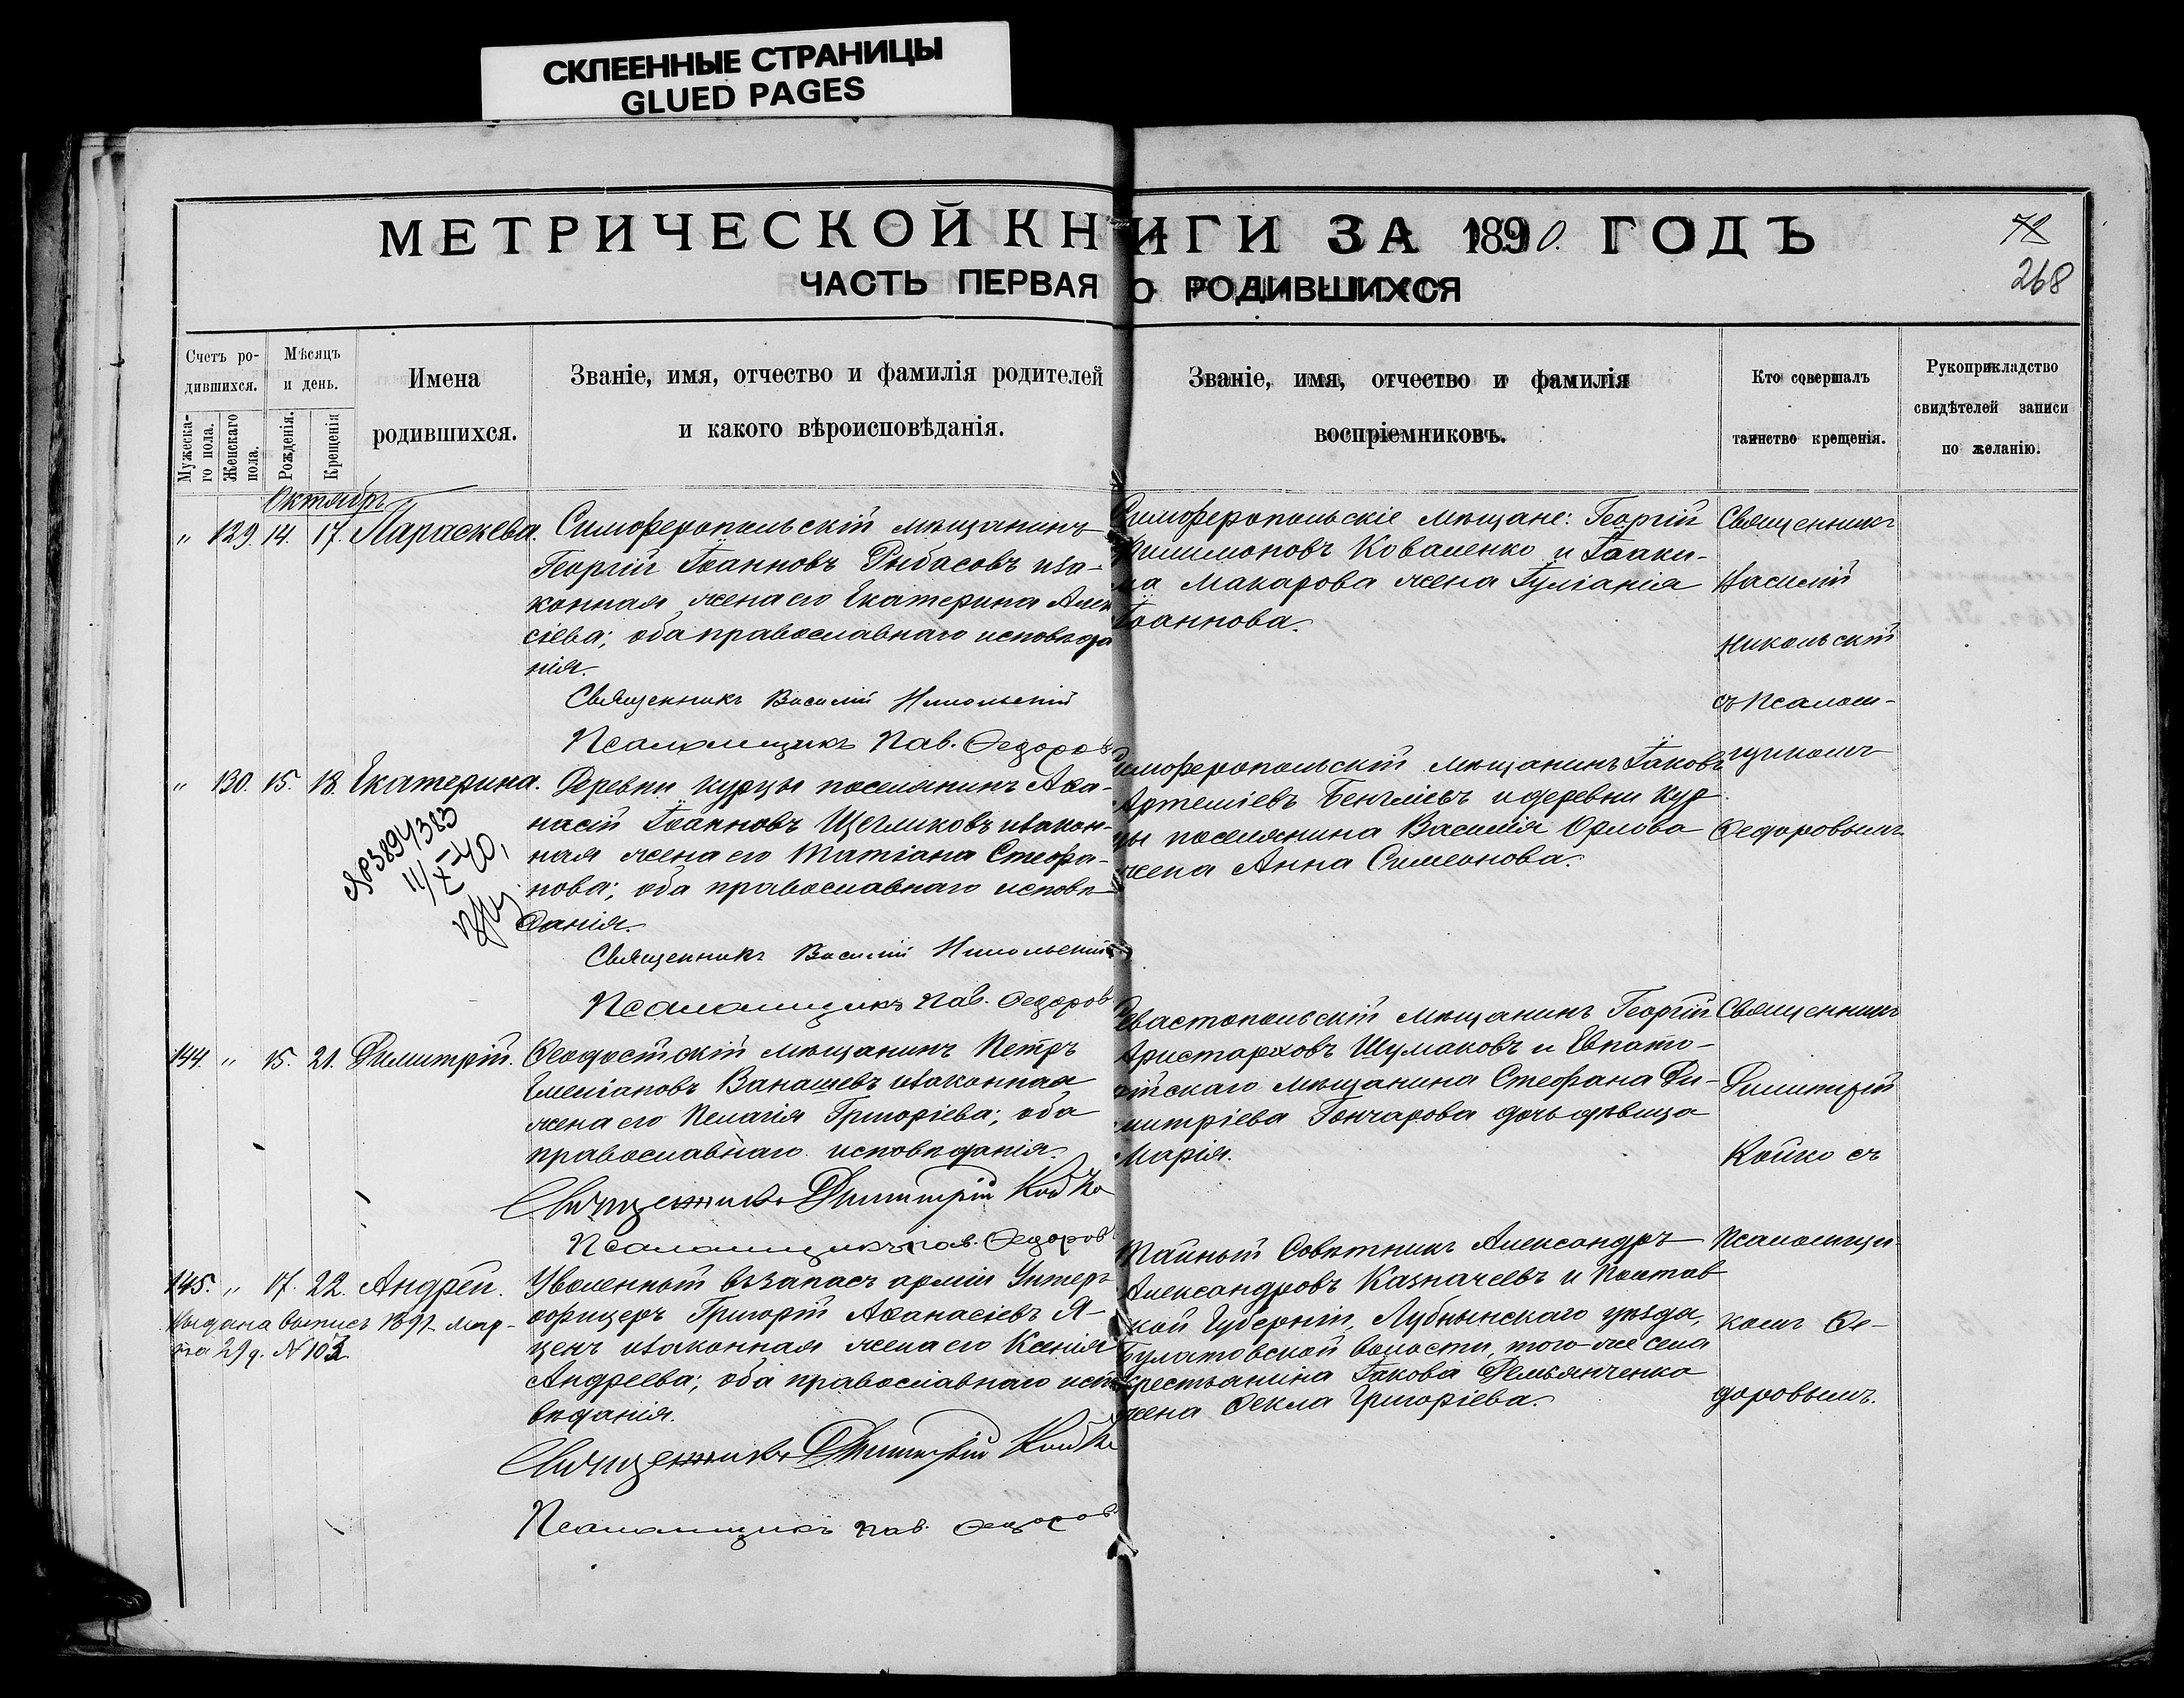 СКЛЕЕННЫЕ СТРАНИЦЫ
GLUED PAGES
МЕТРИЧЕСКОЙ КНИГИ ЗА 1890. ГОДЪ
ЧАСТЬ ПЕРВАЯ О РОДИВШИХСЯ
268
Счетъ ро-
дившихся.
Мужеска-
го пола.
Женскаго
пола.
Мѣсяцъ
и день.
Рожденія.
Крещенія
Имена
родившихся.
Званіе, имя, отчество и фамилія родителей
и какого вѣроисповѣданія.
Званіе, имя, отчество и фамилія
воспріемниковъ.
Кто совершалъ
таинство крещенія.
Рукоприкладство
свидѣтелей записи
по желанію.
Октябрь
" 129. 14. 17. Параскева.
Симферопольскій мѣщанинъ
Георгій Іоанновъ Рыбасовъ иза-
конная жена его Екатерина Алек
сіева; оба православнаго исповѣда
нія.
Священникъ Василій Никольскій
Псаломщикъ Пав. Федоров
Симферопольскіе мѣщане: Георгій
Филимоновъ Коваленко и Іоаки-
ма Макарова жена Іуліанія
Іоаннова.
Священникъ
Василій
Никольскій
съ Псалом-
щикомъ
Федоровымъ
" 130. 15. 18. Екатерина.
Деревни Курцы поселянинъ Аѳа-
насій Іоанновъ Щегликовъ изакон-
ная жена его Татіана Стефа-
нова; оба православнаго исповѣ-
данія.
Священникъ Василій Никольскій
Псаломщикъ Пав. Федоров
11/X-40,
Симферопольскій мѣщанинъ Іаковъ
Артеміевъ и деревни Кур
цы поселянина Василія Орлова
жена Анна Симеонова.
144. " 15. 21. Димитрій.
Феодосійскій мѣщанинъ Петръ
Емеліановъ Ванашевъ изаконная
жена его Пелагія Григоріева; оба
православнаго исповѣданія.
Священникъ Димитрій Койко
Псаломщикъ Пав. Федоров
Севастопольскій мѣщанинъ Георгій
Аристарховъ Шумаковъ и Евпато-
рійскаго мѣщанина Стефана Ди-
митріева Гончарова дочь дѣвица
Марія.
Священникъ
Димитрій
Койко съ
Псаломщи-
комъ Фе-
доровымъ.
145. " 17. 22. Андрей.
Выдана выпись 1891 мар-
та 29 д. № 103
Уволенный въ запасъ арміи Унтеръ
офицеръ Григорій Аѳанасіевъ Я-
ценъ изаконная жена его Ксенія
Андреева; оба православнаго испо
вѣданія.
Священникъ Димитрій Койко
Псаломщикъ Пав. Федоров
Тайный Совѣтникъ Александръ
Александровъ Казначеевъ и Полтав
ской Губерніи, Лубнынскаго уѣзда,
Булатовской волости, того же села
крестьянина Іакова Демьянченко
жена Фекла Григоріева.